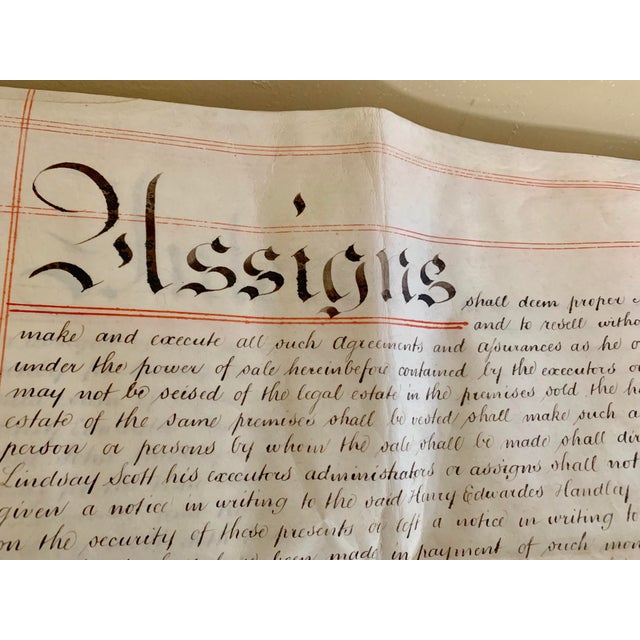 Assigns shall deem proper
and to resell witho
make and execute all such Agreements and assurances as he o
under the power of sale hereinbefore contained by the executors o
may not be seised of the legal estate in the premises sold the h
estate of the same premises shall be vested shall make such a
person or persons by whom the sale shall be made shall dir
Lindsay Scott his executors administrators or assigns shall not
given a notice in writing to the said Harry Edwardes Handley
on the security of these presents or left a notice in writing to
been made in payment of such mon